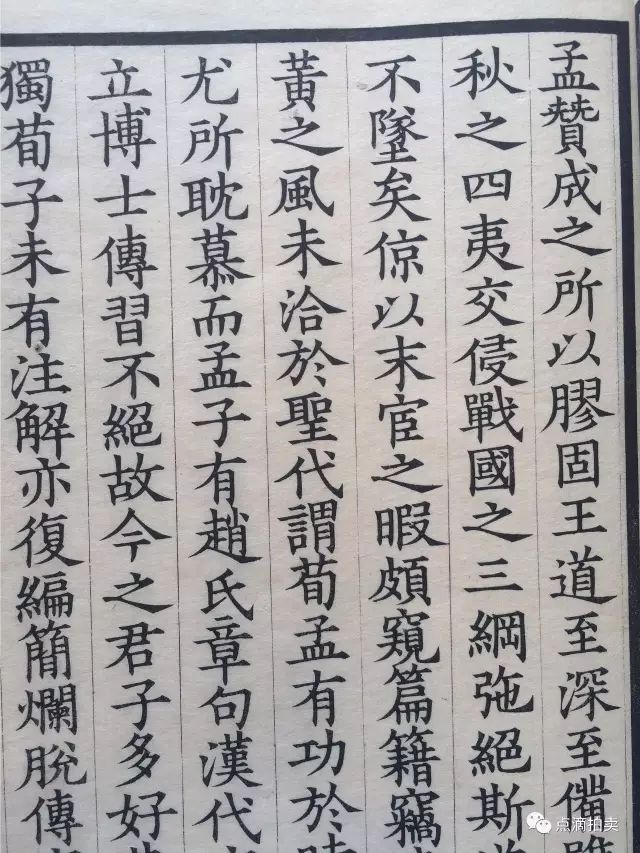 孟贊成之所以膠固王道至深至備
秋之四夷交侵戰國之三綱弛絕斯
不墜矣倞以末宦之暇頗窺篇籍竊
黃之風未洽於聖代謂荀孟有功於
尤所耽慕而孟子有趙氏章句漢代
立博士傳習不絕故今之君子多好
獨荀子未有注解亦復編簡爛脫傳
点滴拍卖